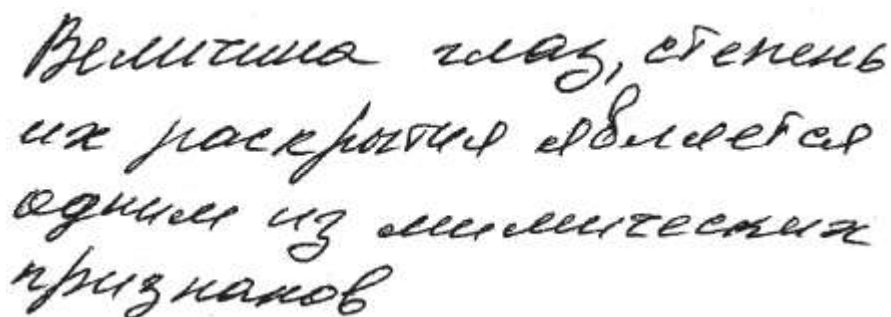 Величина глаз, степень
их раскрытия является
одним из мимических
признаков